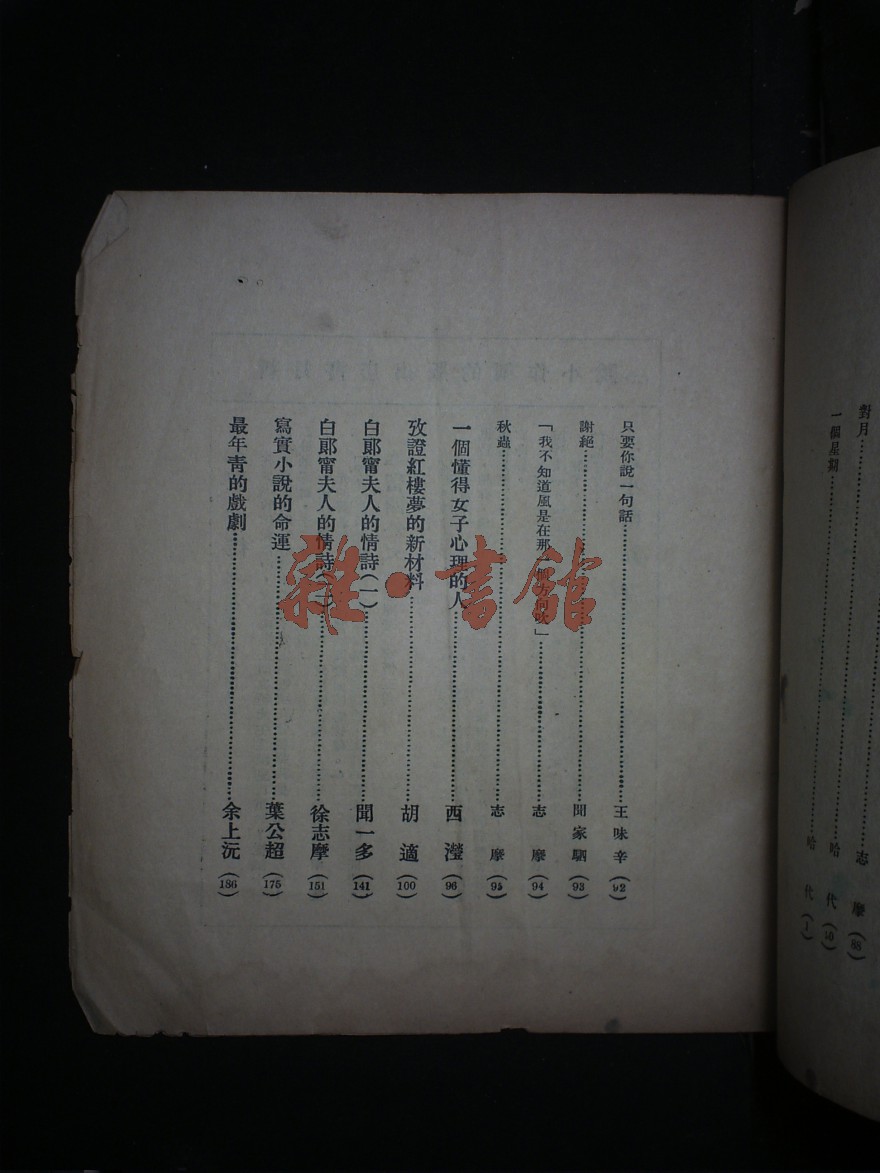 對月……志摩(88)
一個星期……哈代(10)
哈代(1)
只要你說一句話……王味辛(92)
謝絕……聞家駟(93)
「我不知道風是在那一個方向吹」……志摩(94)
秋蟲……志摩(95)
一個懂得女子心理的人……西瀅(96)
攷證紅樓夢的新材料……胡適(100)
白郎甯夫人的情詩(一)……聞一多(141)
白郎甯夫人的情詩(二)……徐志摩(151)
寫實小說的命運……葉公超(175)
最年青的戲劇……余上沅(186)
雜·書館